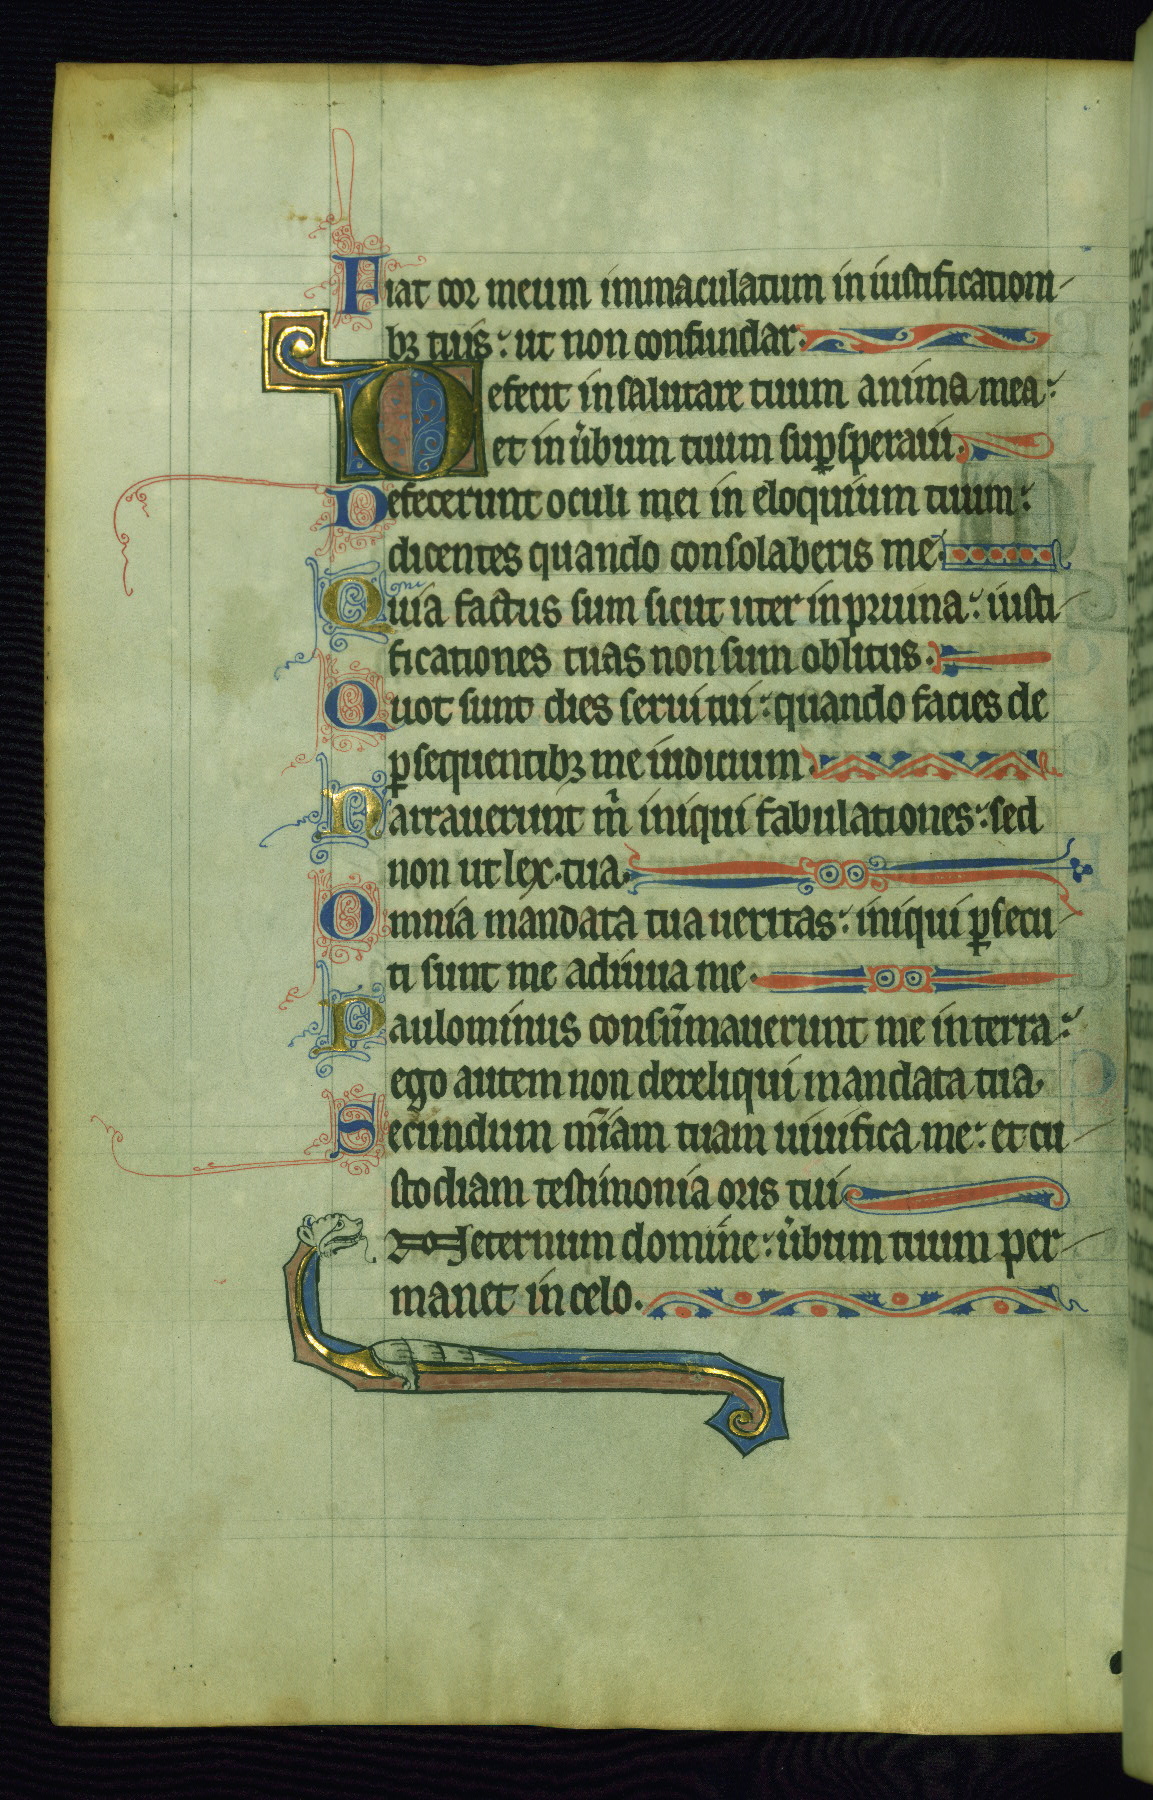 Fiat cor meum immaculatum in iustificationi
bꝫ tuis: ut non confundar.
Defecit in salutare tuum anima mea:
et in ũbum tuum suꝑsperaui.
Defecerunt oculi mei in eloquium tuum:
dicentes quando consolaberis me.
Quia factus sum sicut uter in pruina: iusti
ficationes tuas non sum oblitus.
Quot sunt dies serui tui: quando facies de
ꝑsequentibꝫ me iudicium.
Narrauerunt m̃ iniqui fabulationes: sed
non ut lex tua.
Omnia mandata tua ueritas: iniqui ꝑsecu
ti sunt me adiuua me.
Paulominus consũmauerunt me in terra:
ego autem non dereliqui mandata tua.
Secundum mĩam tuam uiuifica me: et cu
stodiam testimonia oris tui
eternum domine: ũbum tuum per
manet in celo.